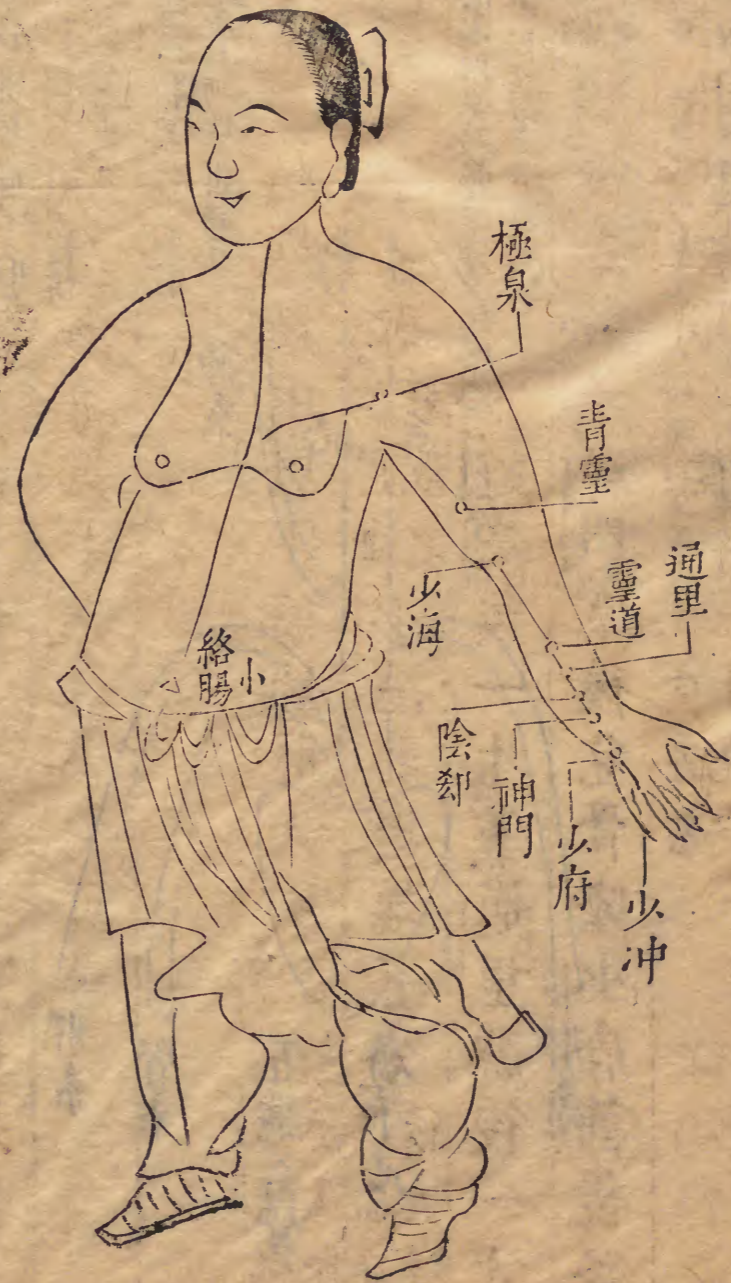 極泉
青靈
通里
靈道
少海
小
絡腸
陰郄
神門
少府
少冲